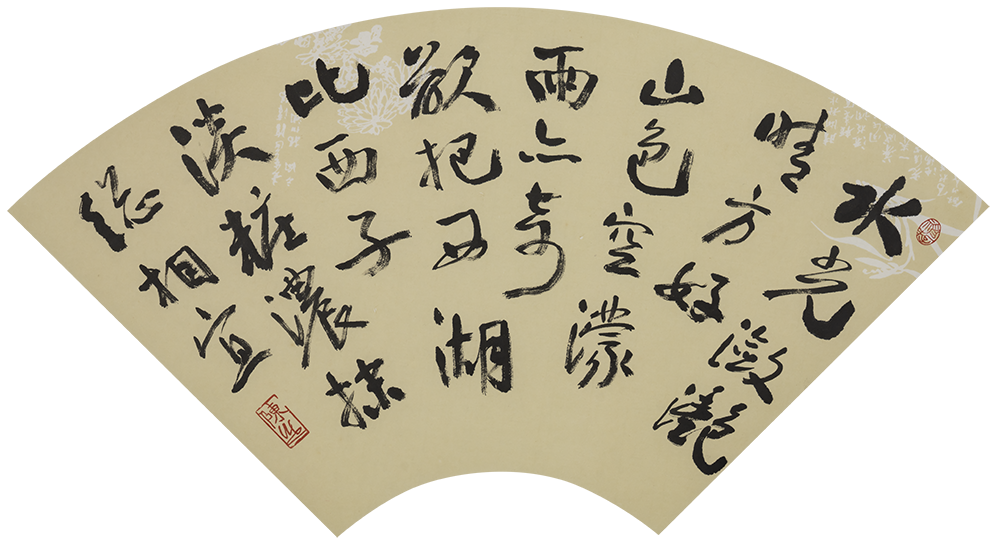 水光瀲灧
晴方好
山色空濛
雨亦奇
欲把西湖
比西子
淡粧濃抹
總相宜